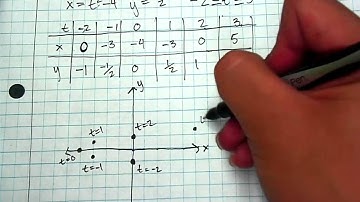 x = t² - 4 y = 2 -2 ≤ t ≤ 3
t -2 -1 0 1 2 3
x 0 -3 -4 -3 0 5
y -1 -½ 0 ½ 1
y
t=2
t=1
x
t=0
t=-1
t=-2